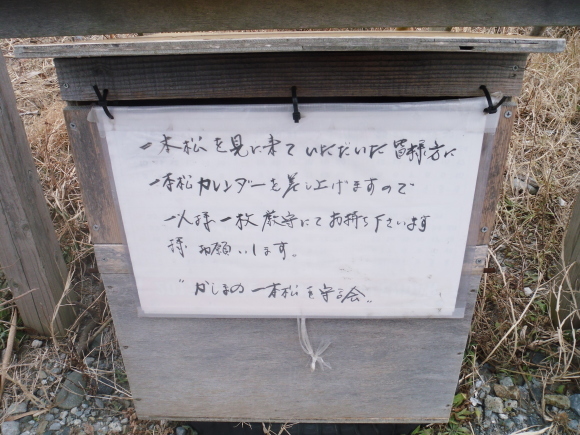 一本松を見に来ていただいた皆様方に
一本松カレンダーを差し上げますので
一人様一枚厳守にてお持ち下さいます
様お願いします。
"かしまの一本松を守る会"